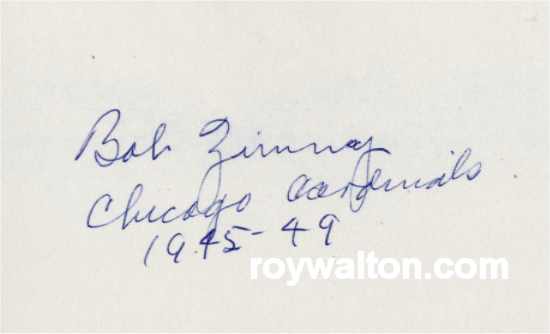 Bob Zimny
Chicago Cardinals
1945-49
roywalton.com